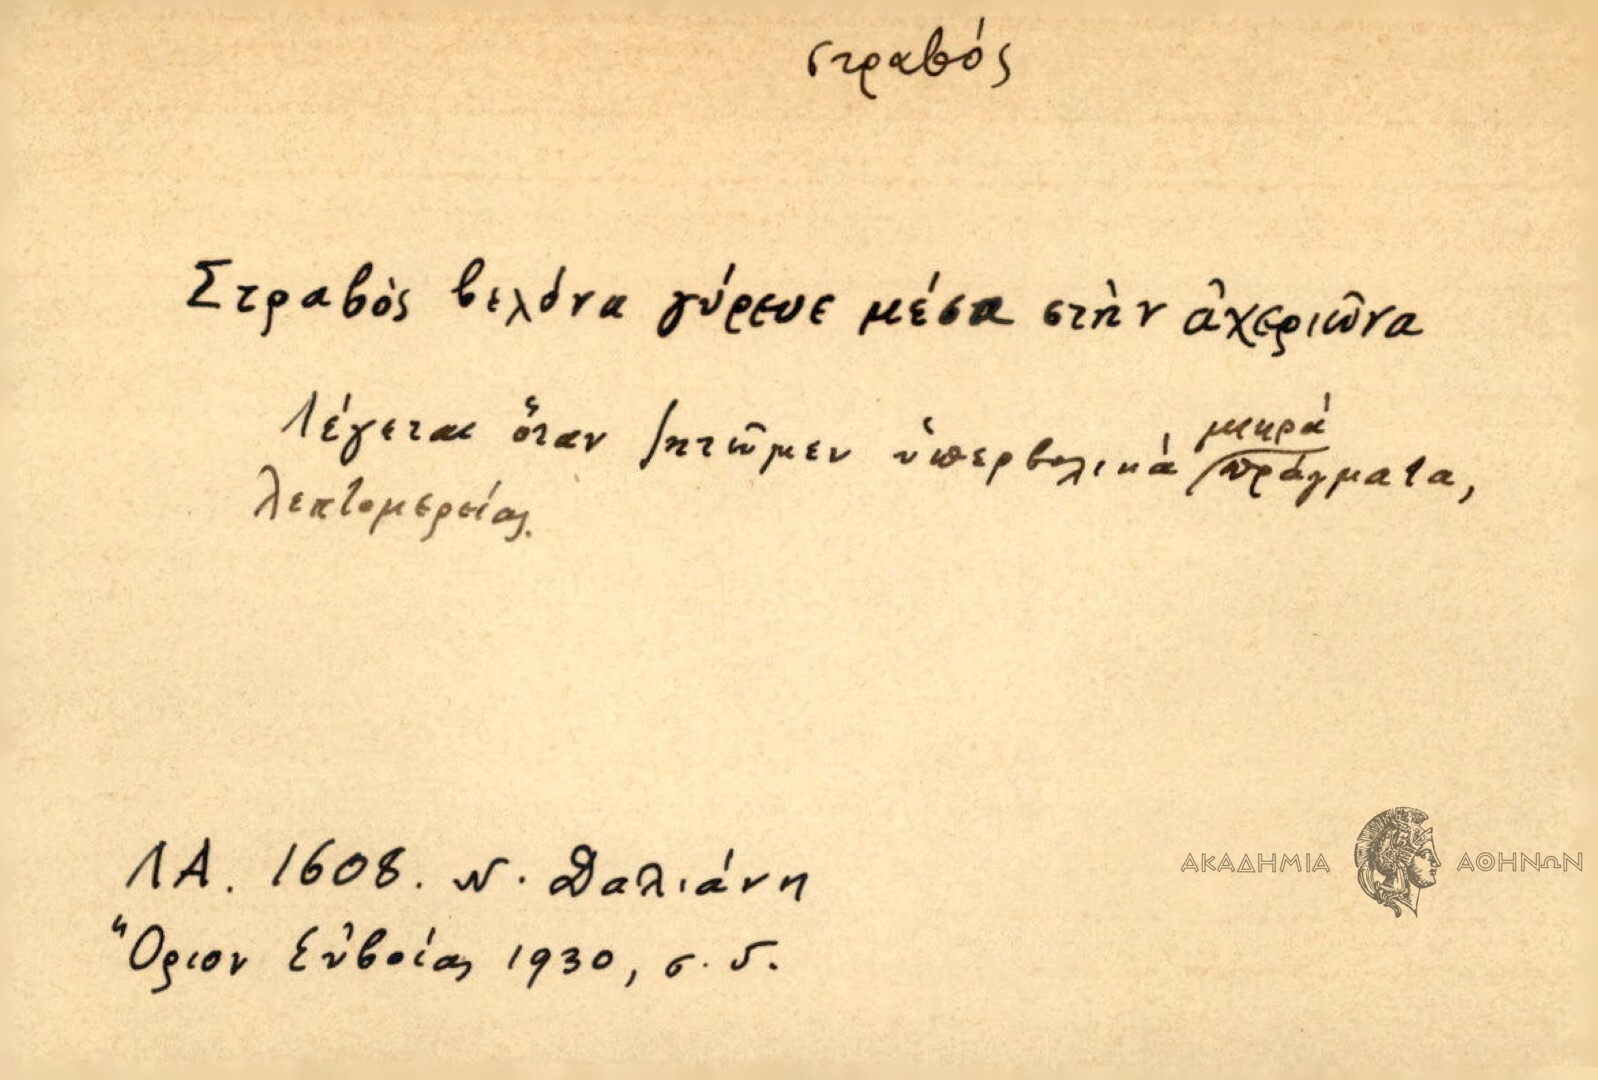 στραβός
Στραβὸς βελόνα γύρευε μέσα στὴν ἀχεριῶνα
Λέγεται ὅταν ζητῶμεν ὑπερβολικά μικρά πράγματα,
λεπτομερείας.
ΛΑ. 1608. Ν. Δαλιάνη
Ὅριον Εὐβοίας 1930, σ. 5.
ΑΚΑΔΗΜΙΑ ΑΘΗΝΩΝ